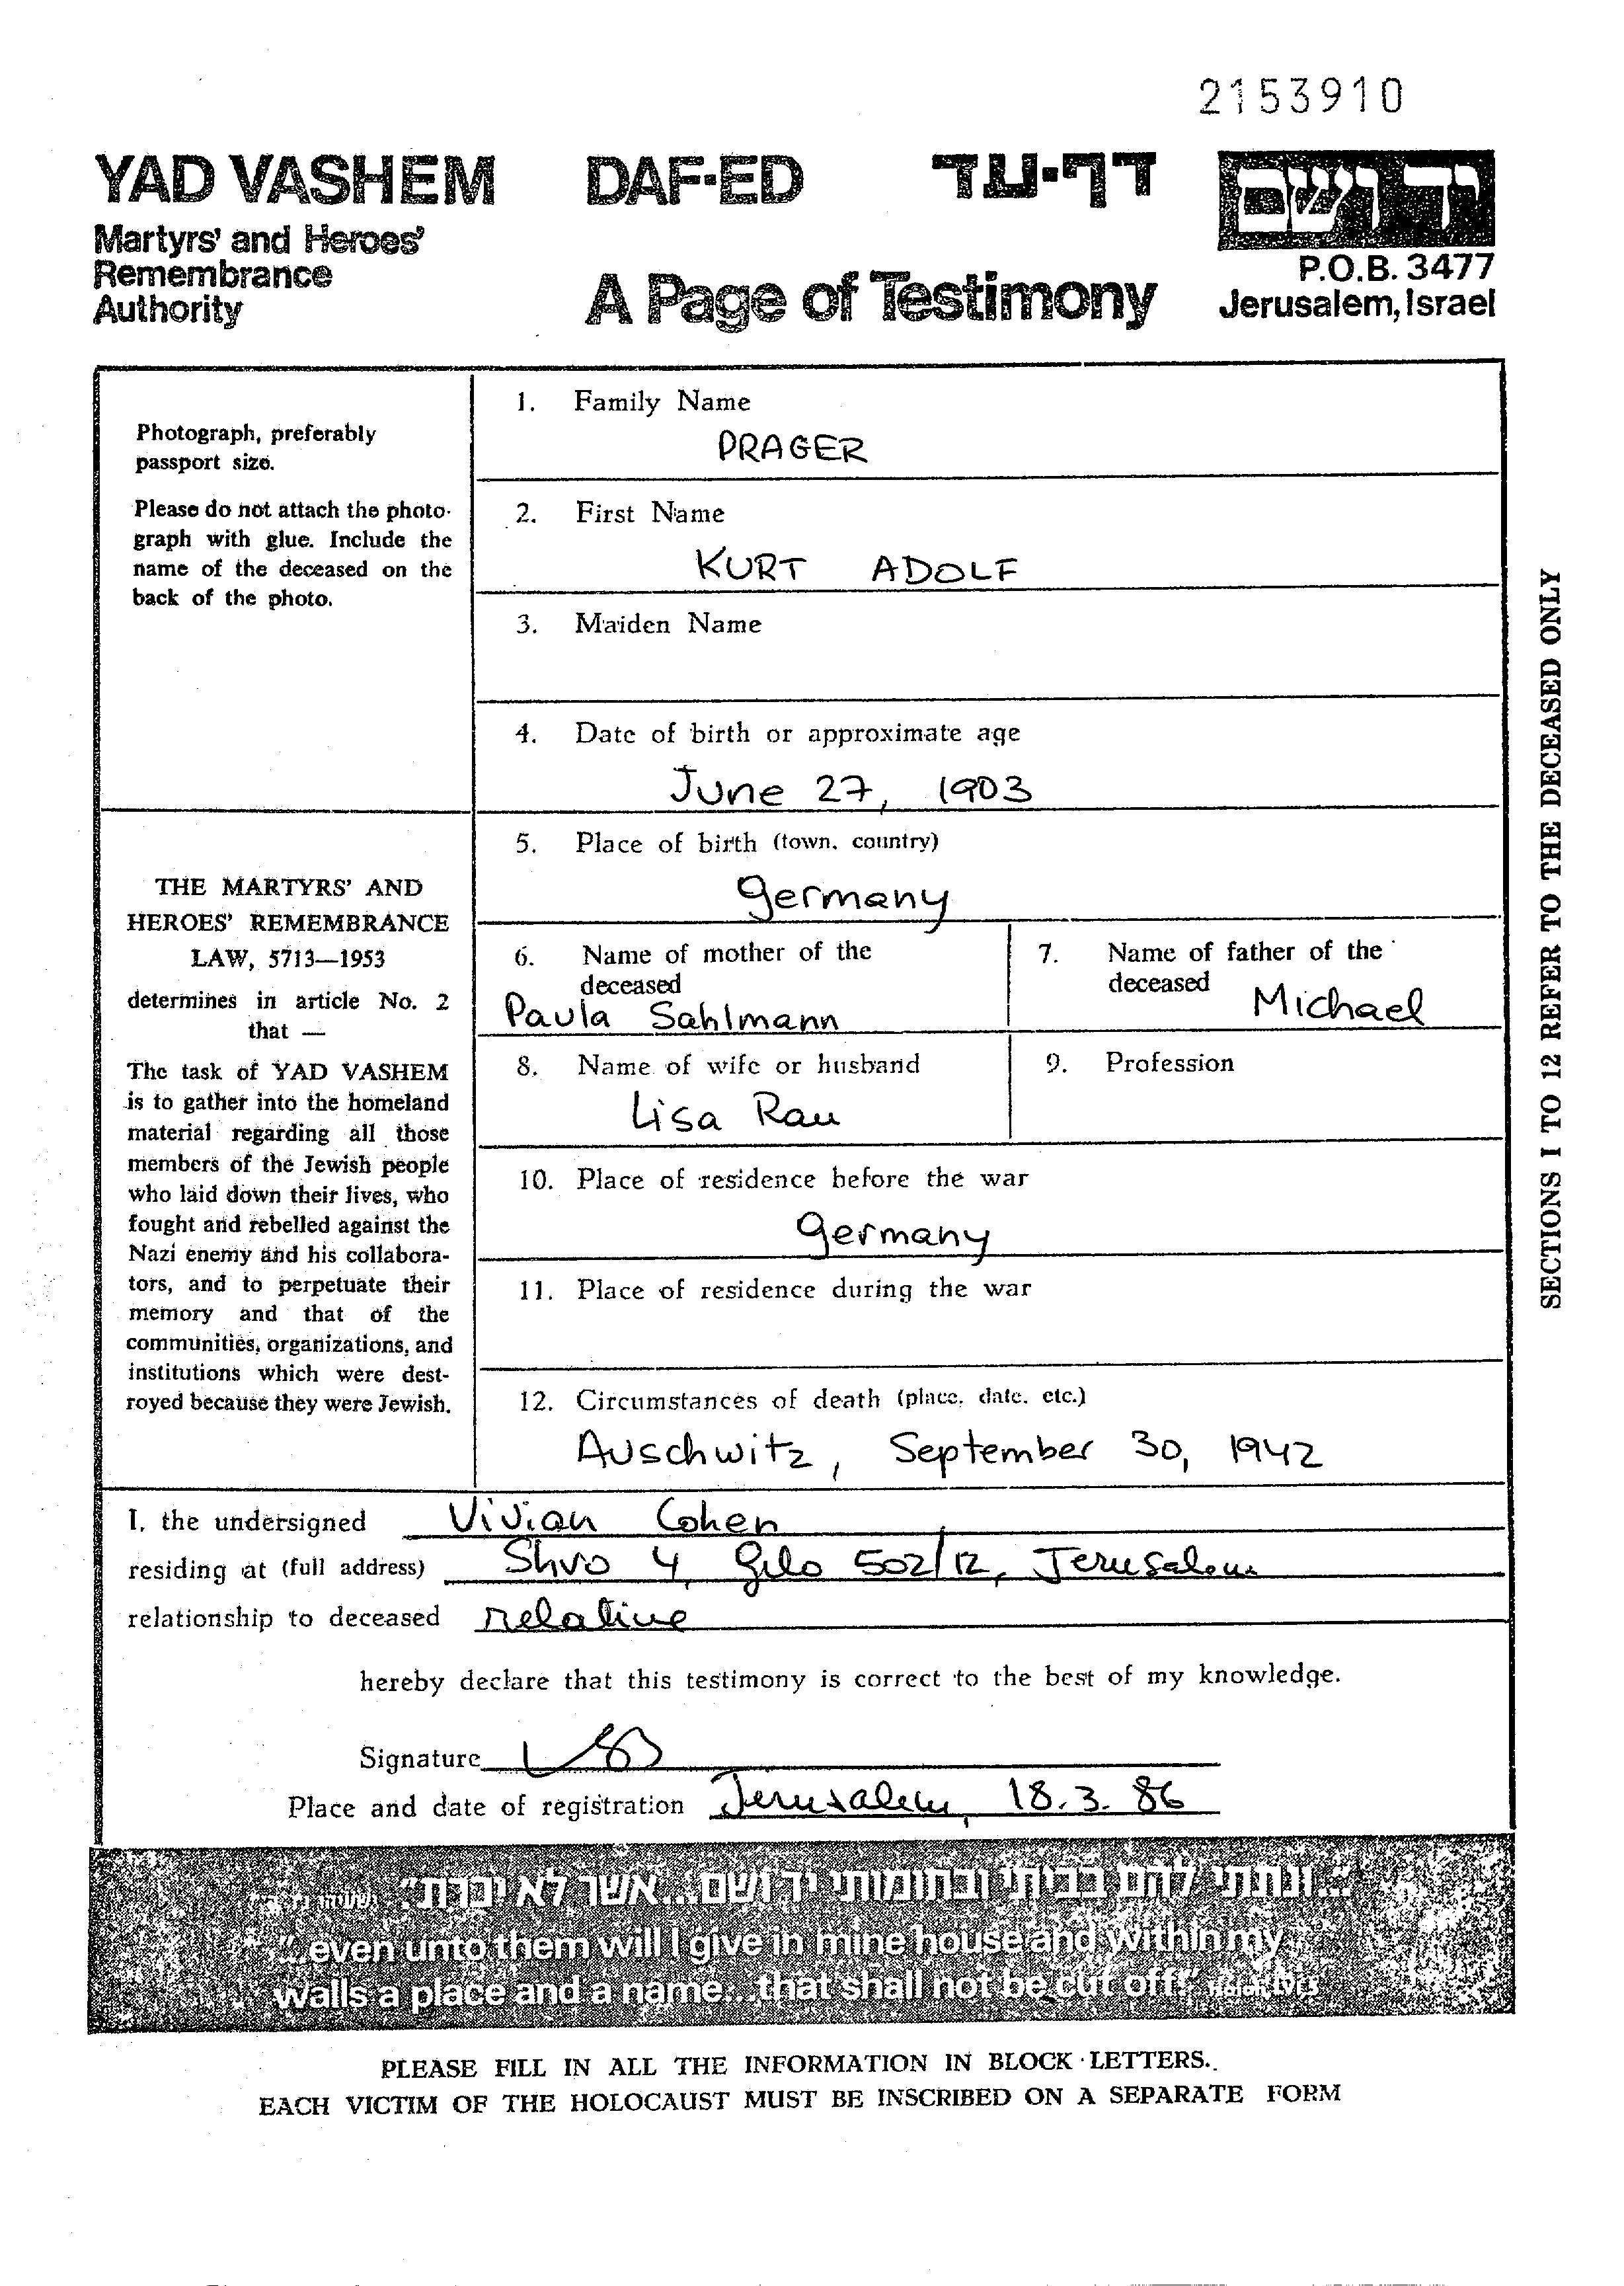 2153910
YAD VASHEM
Martyrs' and Heroes'
Remembrance
Authority
DAF-ED דף-עד
A Page of Testimony
יד ושם
P.O.B. 3477
Jerusalem, Israel
Photograph, preferably
passport size.
Please do not attach the photo-
graph with glue. Include the
name of the deceased on the
back of the photo.
THE MARTYRS' AND
HEROES' REMEMBRANCE
LAW, 5713—1953
determines in article No. 2
that —
The task of YAD VASHEM
is to gather into the homeland
material regarding all those
members of the Jewish people
who laid down their lives, who
fought and rebelled against the
Nazi enemy and his collabora-
tors, and to perpetuate their
memory and that of the
communities, organizations, and
institutions which were dest-
royed because they were Jewish.
1. Family Name
PRAGER
2. First Name
KURT ADOLF
3. Maiden Name
4. Date of birth or approximate age
June 27, 1903
5. Place of birth (town, country)
Germany
6. Name of mother of the
deceased
Paula Sahlmann
7. Name of father of the
deceased Michael
8. Name of wife or husband
Lisa Rau
9. Profession
10. Place of residence before the war
Germany
11. Place of residence during the war
12. Circumstances of death (place, date, etc.)
Auschwitz, September 30, 1942
SECTIONS 1 TO 12 REFER TO THE DECEASED ONLY
I, the undersigned Vivian Cohen
residing at (full address) Shvo 4, Gilo 502/12, Jerusalem
relationship to deceased relative
hereby declare that this testimony is correct to the best of my knowledge.
Signature
Place and date of registration Jerusalem, 18.3.86
"...ונתתי להם בביתי ובחומותי יד ושם...אשר לא יכרת".
"...even unto them will I give in mine house and within my
walls a place and a name...that shall not be cut off."
PLEASE FILL IN ALL THE INFORMATION IN BLOCK LETTERS.
EACH VICTIM OF THE HOLOCAUST MUST BE INSCRIBED ON A SEPARATE FORM